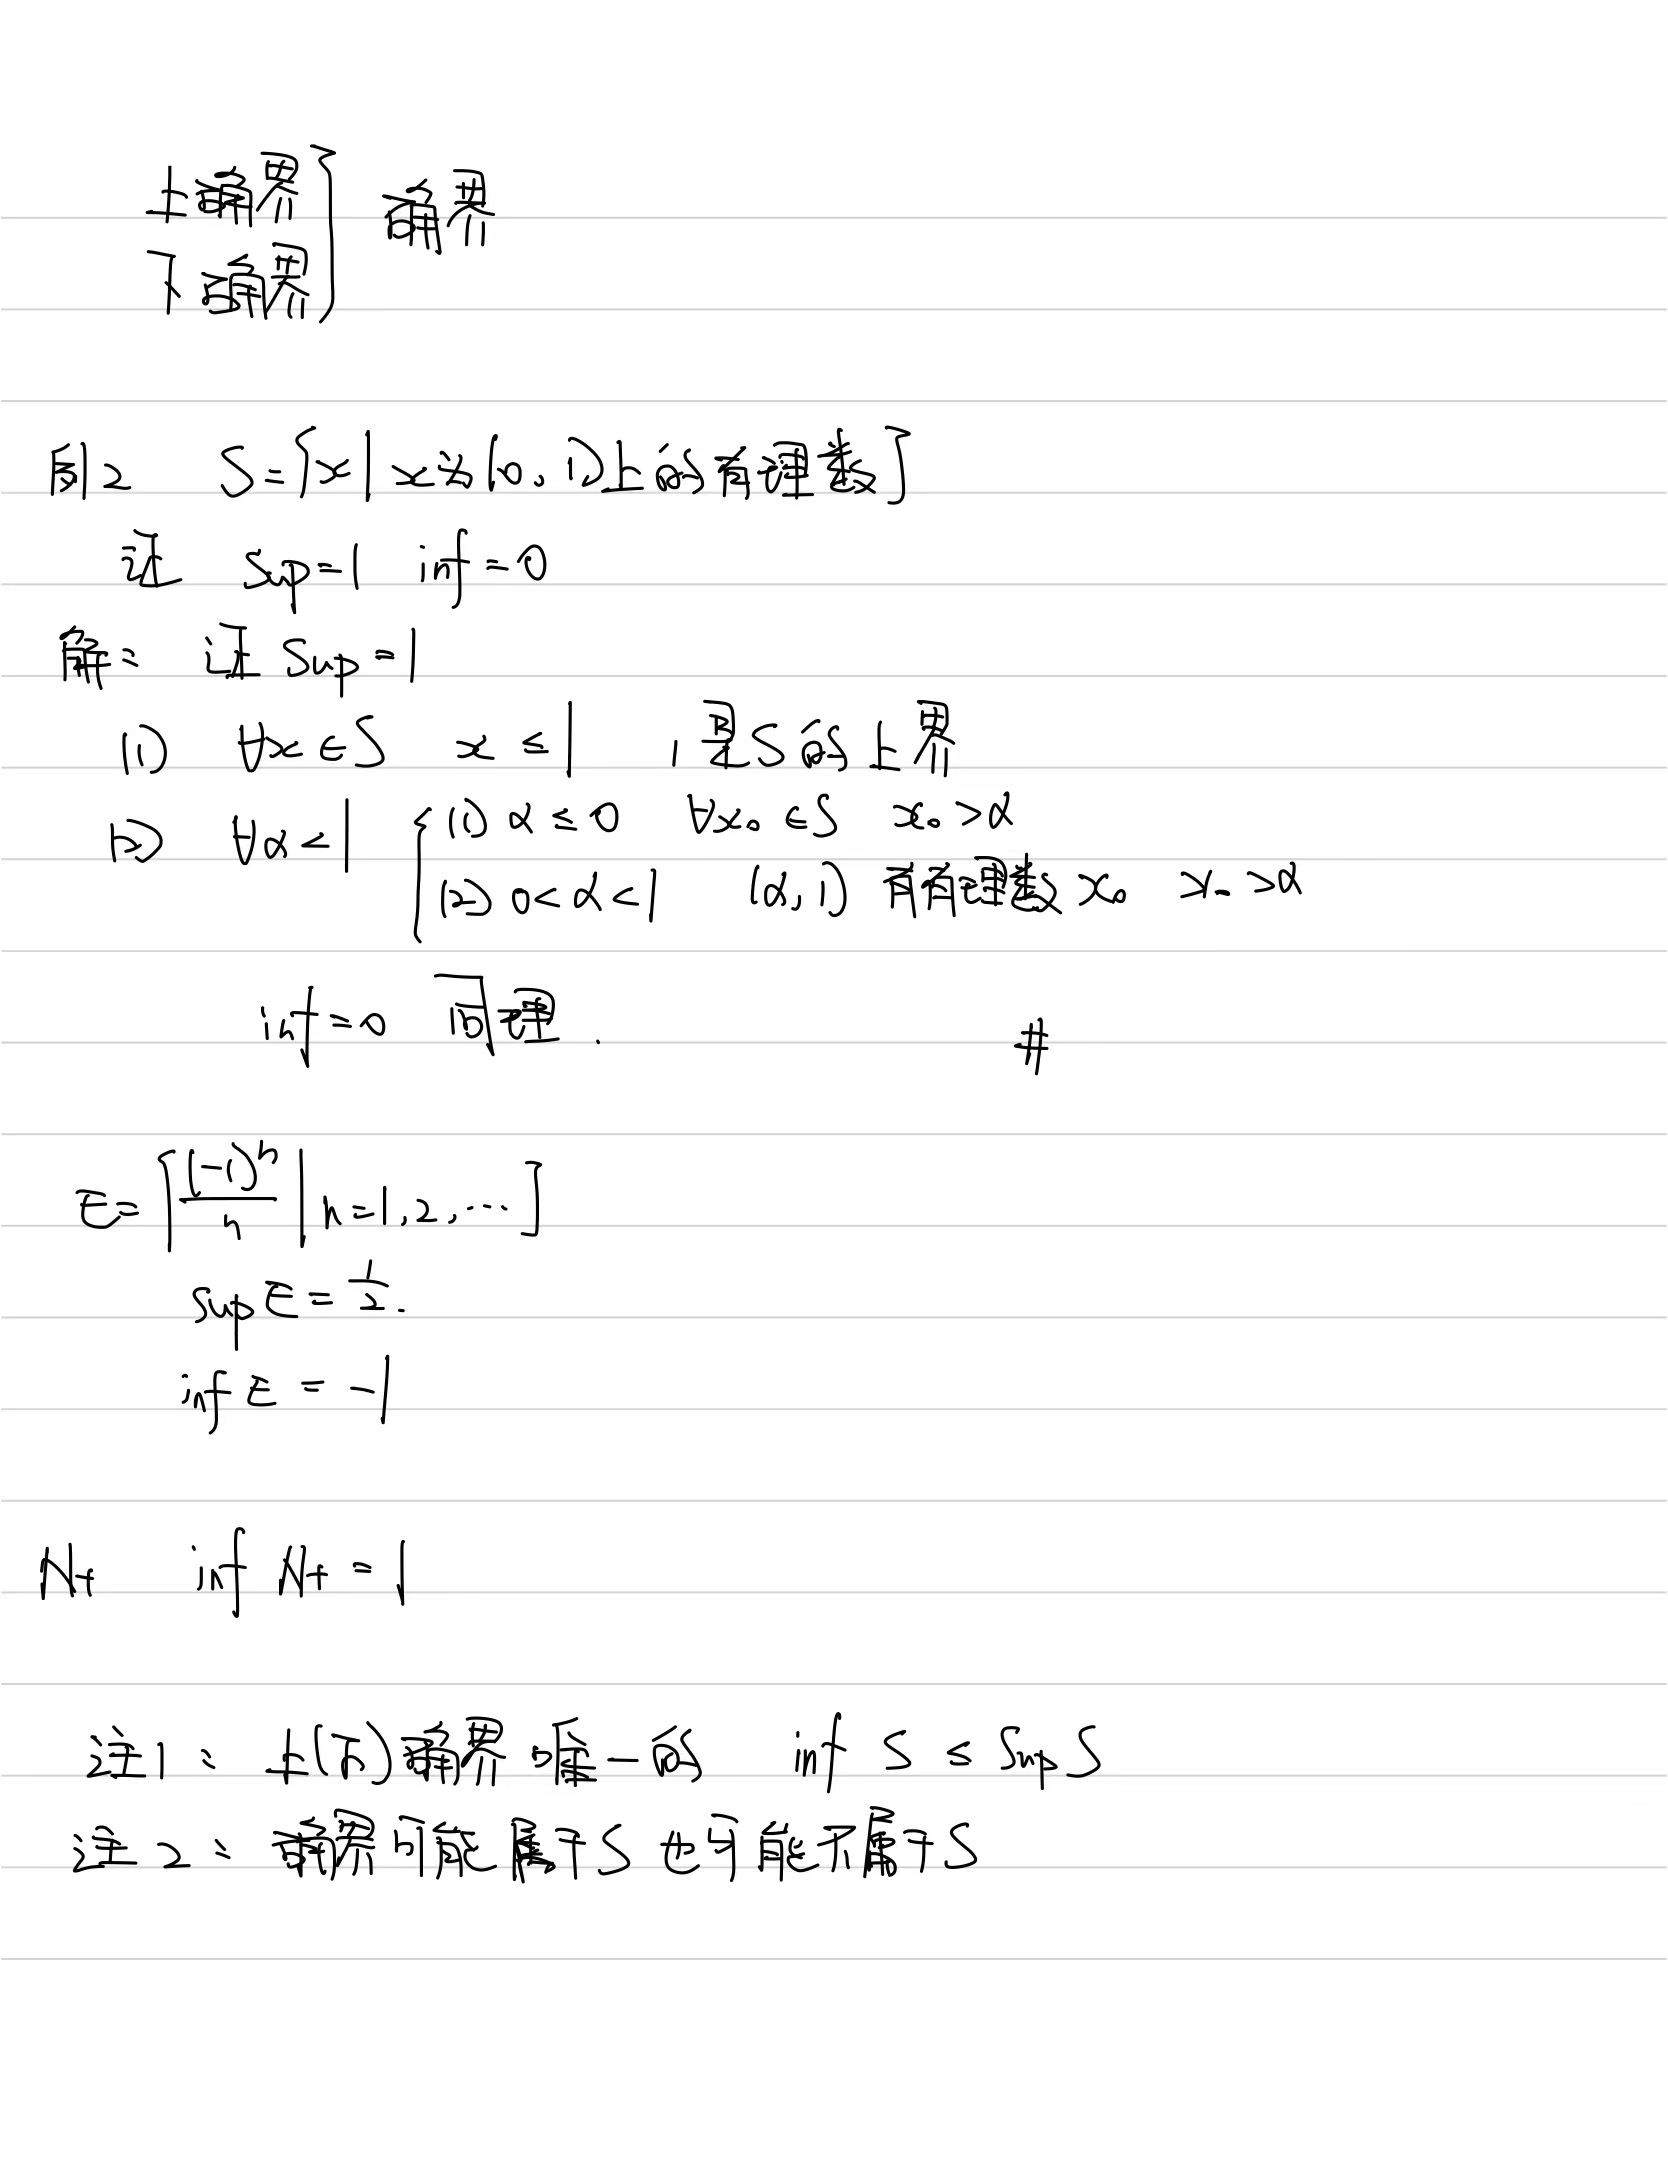 上确界
下确界 } 确界
例2 S={x|x为(0,1)上的有理数}
证 sup=1 inf=0
解: 证 sup=1
(1) ∀x∈S x≤1 1是S的上界
(2) ∀α<1 { (1) α≤0 ∀x₀∈S x₀>α
(2) 0<α<1 (α,1) 有有理数 x₀ x₀>α
inf=0 同理. #
E={(-1)ⁿ/n | n=1,2,…}
sup E = 1/2.
inf E = -1
N+ inf N+ = 1
注1: 上(下)确界唯一的 inf S ≤ sup S
注2: 确界可能属于S也可能不属于S